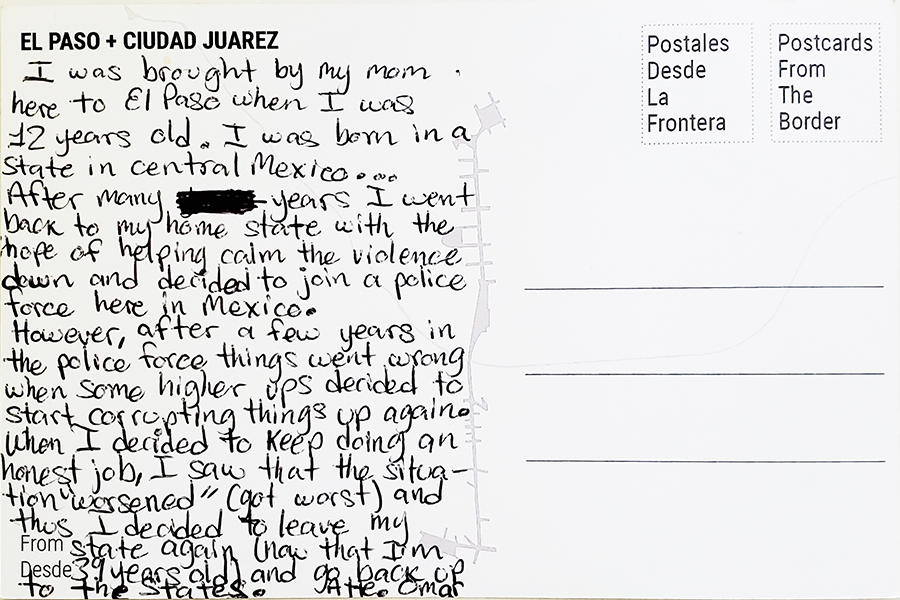 EL PASO + CIUDAD JUAREZ
I was brought by my mom
here to El Paso when I was
12 years old. I was born in a
state in central Mexico....
After many years I went
back to my home state with the
hope of helping calm the violence
down and decided to join a police
force here in Mexico.
However, after a few years in
the police force things went wrong
when some higher ups decided to
start corrupting things up again.
When I decided to keep doing an
honest job, I saw that the situa-
tion "worsened" (got worst) and
thus I decided to leave my
From state again (now that I'm
Desde 39 years old) and go back up
to the States. Atte. Omar
Postales
Desde
La
Frontera
Postcards
From
The
Border